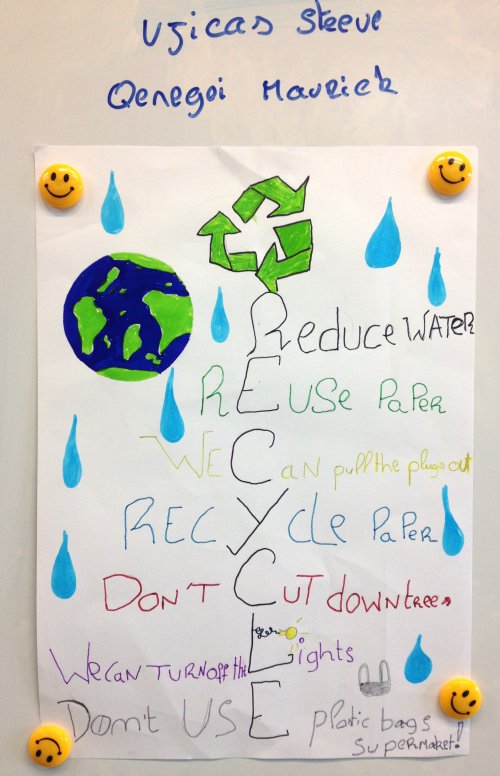 Vjicas Steeve
Qenegei Maurick
Reduce WATER
REUSe PaPeR
WE CaN pull the plugs out
RECYcLe PaPeR
DON'T CUT down trees
We CAN TURN off the Lights
Don't USE plastic bags
supermaket!